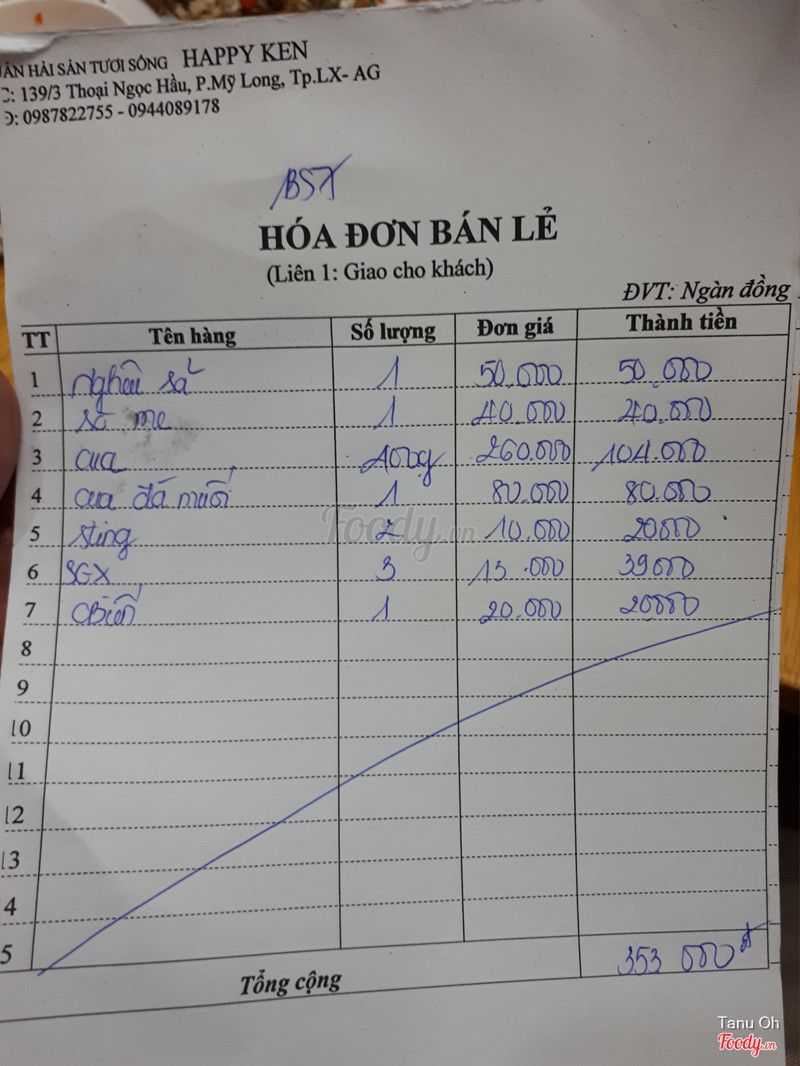 ÁN HẢI SẢN TƯƠI SỐNG HAPPY KEN
C: 139/3 Thoại Ngọc Hầu, P.Mỹ Long, Tp.LX- AG
Đ: 0987822755 - 0944089178
BSX
HÓA ĐƠN BÁN LẺ
(Liên 1: Giao cho khách)
ĐVT: Ngàn đồng
TT Tên hàng Số lượng Đơn giá Thành tiền
1 nghêu sả 1 50.000 50.000
2 sò me 1 40.000 40.000
3 cua 400g 260.000 104.000
4 cua đá muối 1 80.000 80.000
5 sting 2 10.000 20000
6 SGX 3 13.000 39000
7 1 20.000 20000
8
9
10
11
12
13
4
5
Tổng cộng 353 000đ
Foody.vn
Tanu Oh
Foody.vn